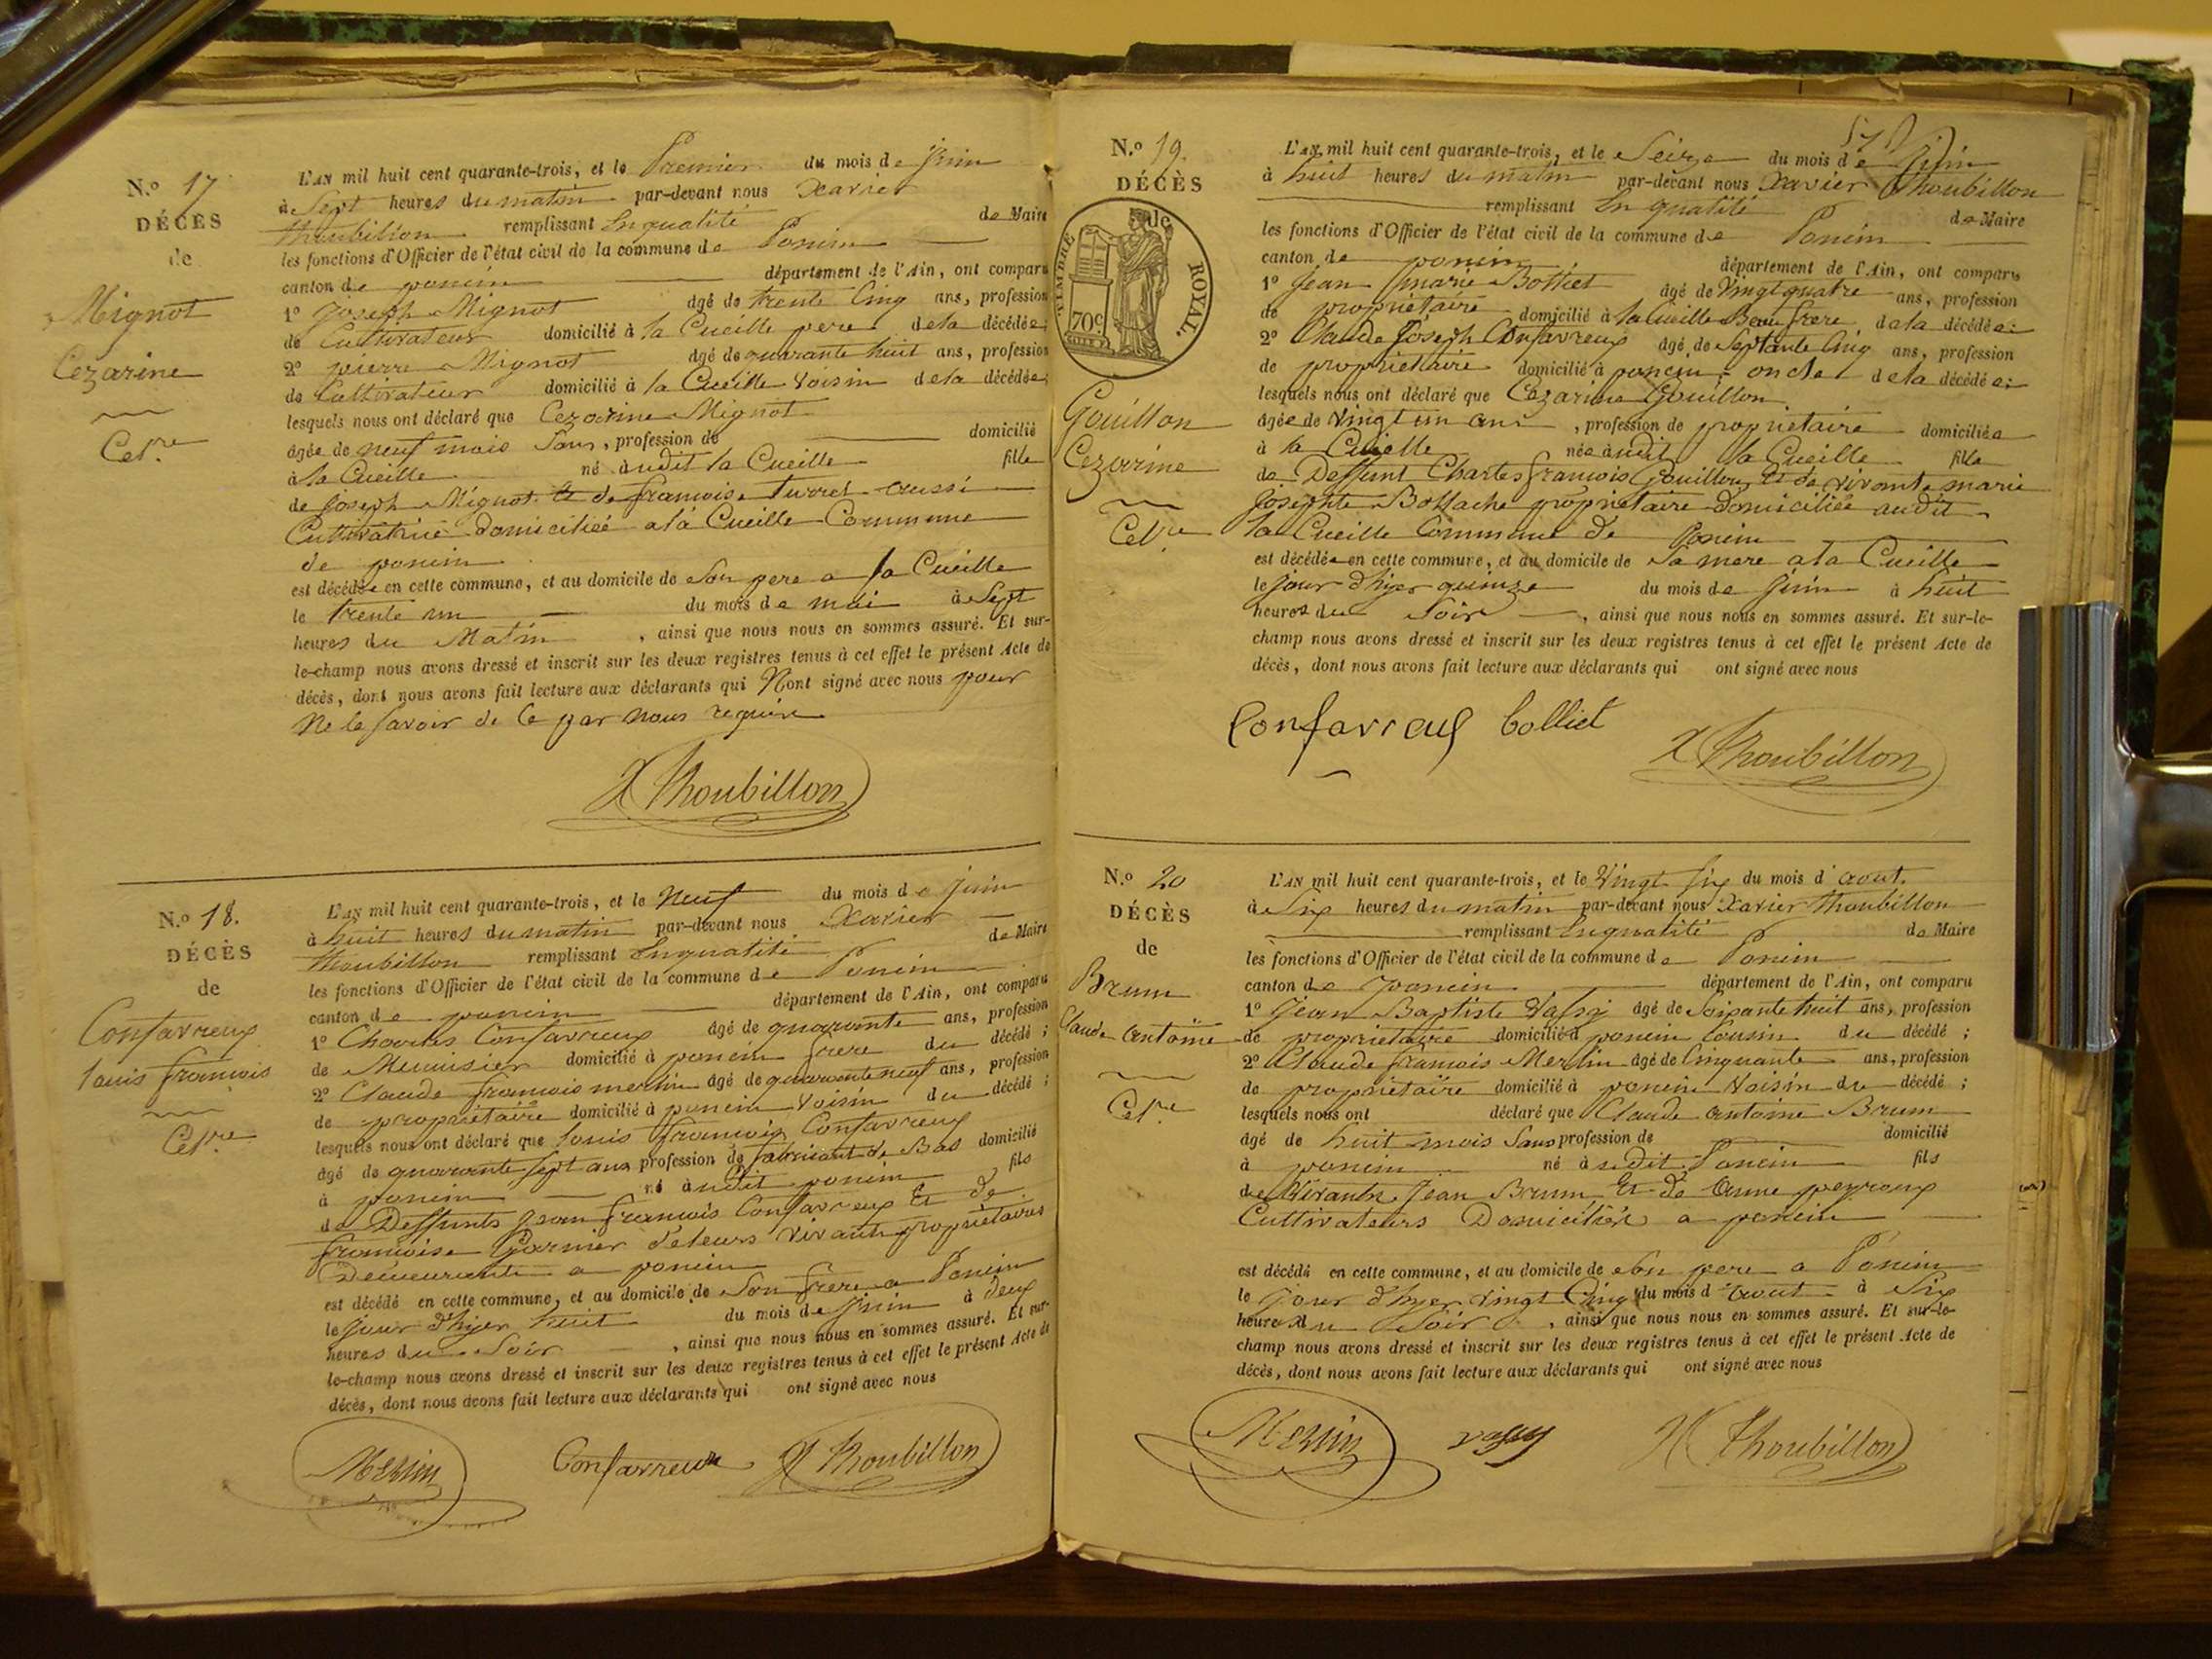 N.º 17
DÉCÈS
de
Mignot
Cezarine
Cel.re
L'AN mil huit cent quarante-trois, et le Premier du mois de juin
à Sept heures du matin par-devant nous Xavier
Thoubillon remplissant En qualité de Maire
les fonctions d'Officier de l'état civil de la commune de Poncin
canton de poncin département de l'Ain, ont comparu
1º Joseph Mignot âgé de trente Cinq ans, profession
de Cultivateur domicilié à la Cueille pere dela décédée;
2º pierre Mignot âgé de quarante huit ans, profession
de Cultivateur domicilié à la Cueille Voisin dela décédée;
lesquels nous ont déclaré que Cezarine Mignot
âgée de neuf mois Sans, profession de domicilié
à la Cueille né àudit la Cueille fille
de Joseph Mignot Et de francoise Turrel aussi
Cultivatrice domiciliée a la Cueille Commune
de poncin
est décédée en cette commune, et au domicile de Son pere a la Cueille
le trente un du mois de mai à Sept
heures du Matin, ainsi que nous nous en sommes assuré. Et sur-
le-champ nous avons dressé et inscrit sur les deux registres tenus à cet effet le présent Acte de
décès, dont nous avons fait lecture aux déclarants qui Nont signé avec nous pour
Ne le savoir de Ce par nous requis
X Thoubillon
N.º 18.
DÉCÈS
de
Confavreux
Louis francois
Cel.re
L'AN mil huit cent quarante-trois, et le Neuf du mois de juin
à huit heures du matin par-devant nous Xavier
Thoubillon remplissant En qualité de Maire
les fonctions d'Officier de l'état civil de la commune de Poncin
canton de poncin département de l'Ain, ont comparu
1º Charles Confavreux âgé de quarante ans, profession
de Menuisier domicilié à poncin frere du décédé;
2º Claude francois merlin âgé de quarante neuf ans, profession
de propriétaire domicilié à poncin Voisin du décédé;
lesquels nous ont déclaré que Louis francois Confavreux
âgé de quarante sept ans profession de fabricant de Bas domicilié
à poncin né àudit poncin fils
de Deffunts Jean francois Confavreux Et de
francoise Garnier de leurs vivants propriétaires
Demeurants a poncin
est décédé en cette commune, et au domicile de Son frere a Poncin
le jour d'hyer huit du mois de juin à deux
heures du Soir, ainsi que nous nous en sommes assuré. Et sur-
le-champ nous avons dressé et inscrit sur les deux registres tenus à cet effet le présent Acte de
décès, dont nous avons fait lecture aux déclarants qui ont signé avec nous
Merlin Confavreux X Thoubillon
N.º 19.
DÉCÈS
de
TIMBRE ROYAL.
70c
Gouillon
Cezarine
Cel.re
L'AN mil huit cent quarante-trois, et le Seize du mois de Juin
à huit heures du matin par-devant nous Xavier Thoubillon
remplissant En qualité de Maire
les fonctions d'Officier de l'état civil de la commune de Poncin
canton de poncin département de l'Ain, ont comparu
1º Jean Marie Bolliet âgé de Vingt quatre ans, profession
de propriétaire domicilié à la Cueille Beau frere dela décédée:
2º Claude Joseph Confavreux âgé de Septante Cinq ans, profession
de propriétaire domicilié à poncin oncle dela décédée:
lesquels nous ont déclaré que Cezarine Gouillon
âgée de Vingt un ans, profession de propriétaire domiciliée
à la Cueille née àudit la Cueille fille
de Deffunt Charles francois Gouillon Et de vivante marie
Josephte Bollache propriétaire domiciliée audit
la Cueille Commune de Poncin
est décédée en cette commune, et au domicile de Sa mere a la Cueille
le jour d'hyer quinze du mois de juin à huit
heures du Soir, ainsi que nous nous en sommes assuré. Et sur-le-
champ nous avons dressé et inscrit sur les deux registres tenus à cet effet le présent Acte de
décès, dont nous avons fait lecture aux déclarants qui ont signé avec nous
Confavreux bolliet
X Thoubillon
N.º 20
DÉCÈS
de
Brum
Claude Antoine
Cel.re
L'AN mil huit cent quarante-trois, et le Vingt Six du mois d'aout.
à Six heures du matin par-devant nous Xavier Thoubillon
remplissant En qualité de Maire
les fonctions d'Officier de l'état civil de la commune de Poncin
canton de poncin département de l'Ain, ont comparu
1º Jean Baptiste Vassy âgé de Soixante huit ans, profession
de propriétaire domicilié à poncin Cousin du décédé;
2º Claude francois Merlin âgé de Cinquante ans, profession
de propriétaire domicilié à poncin Voisin du décédé;
lesquels nous ont déclaré que Claude antoine Brum
âgé de huit mois Sans profession de domicilié
à poncin né à sudit Poncin fils
de Vivants Jean Brum Et de Anne peyroux
Cultivateurs Domiciliés a poncin
est décédé en cette commune, et au domicile de Son pere a Poncin
le jour d'hyer vingt Cinq du mois d'aout à Six
heures du Soir, ainsi que nous nous en sommes assuré. Et sur-le-
champ nous avons dressé et inscrit sur les deux registres tenus à cet effet le présent Acte de
décès, dont nous avons fait lecture aux déclarants qui ont signé avec nous
Merlin vassy X Thoubillon